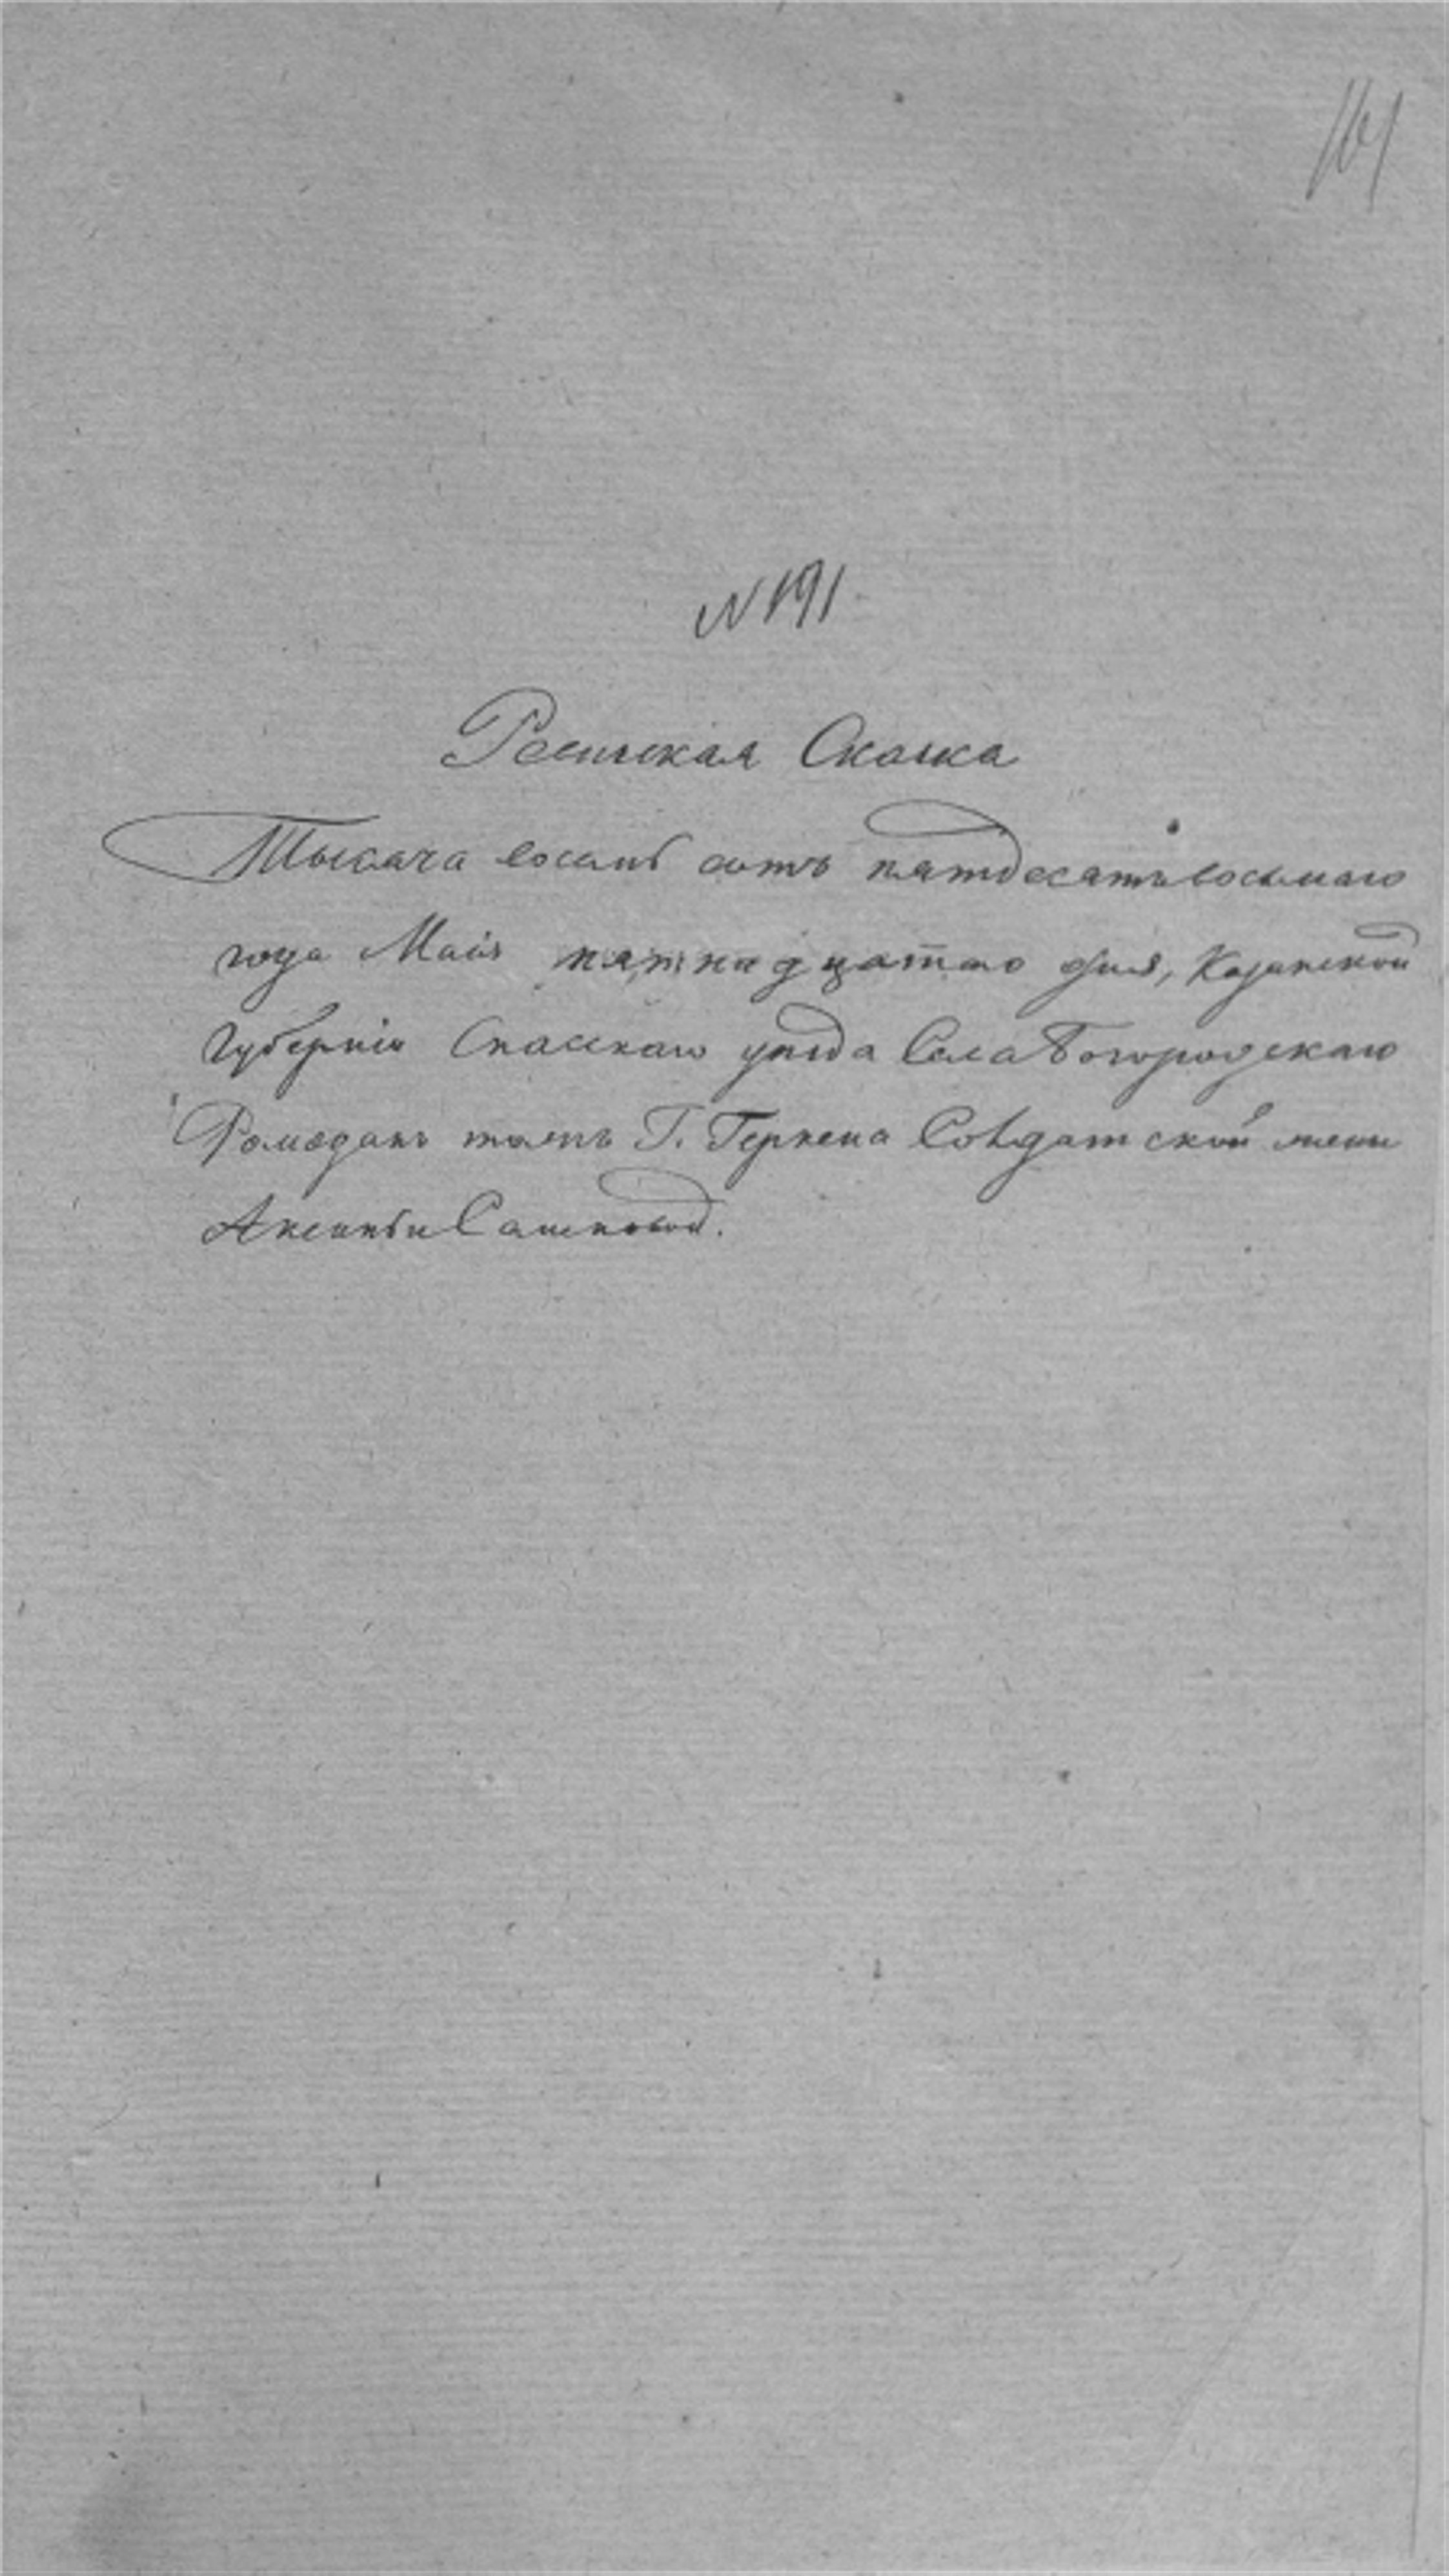 101
N 191
Ревижская Скаска
Тысяча восемь сотъ пятдесятъ восьмаго
года Маія пятнадцатаго дня, Казанской
Губерніи Спаскаго уезда Села Богородскаго
Ромодань тожъ Г. Геркена Солдатской жены
Аксиньи Сашковой.